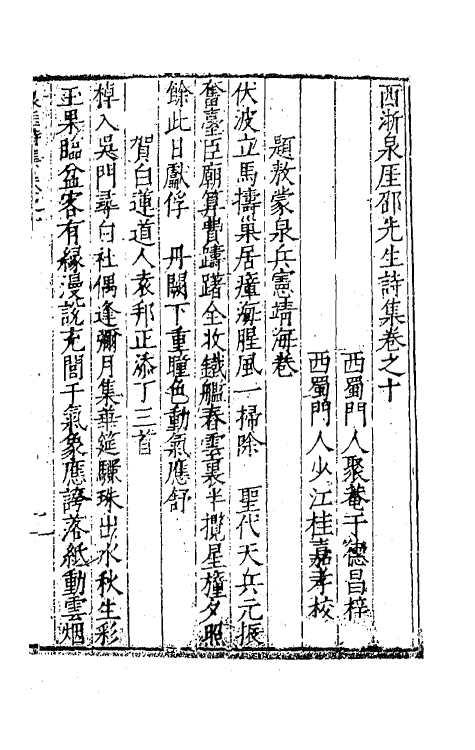 西浙泉厓邵先生詩集卷之十
西蜀門人聚菴于德昌梓
西蜀門人少江桂嘉孝校
題敖蒙泉兵憲靖海卷
伏波立馬擣巢居瘴海腥風一掃除 聖代天兵元振
奮臺臣廟算費躊躇全收鐵艦春雲裏半攬星幢夕照
餘此日獻俘 丹闕下重瞳色動氣應舒
賀白蓮道人袁邦正添丁三首
棹入吳門尋白社偶逢彌月集華筵驪珠出水秋生彩
玉果臨盆客有緣漫說充閭干氣象應誇落紙動雲烟